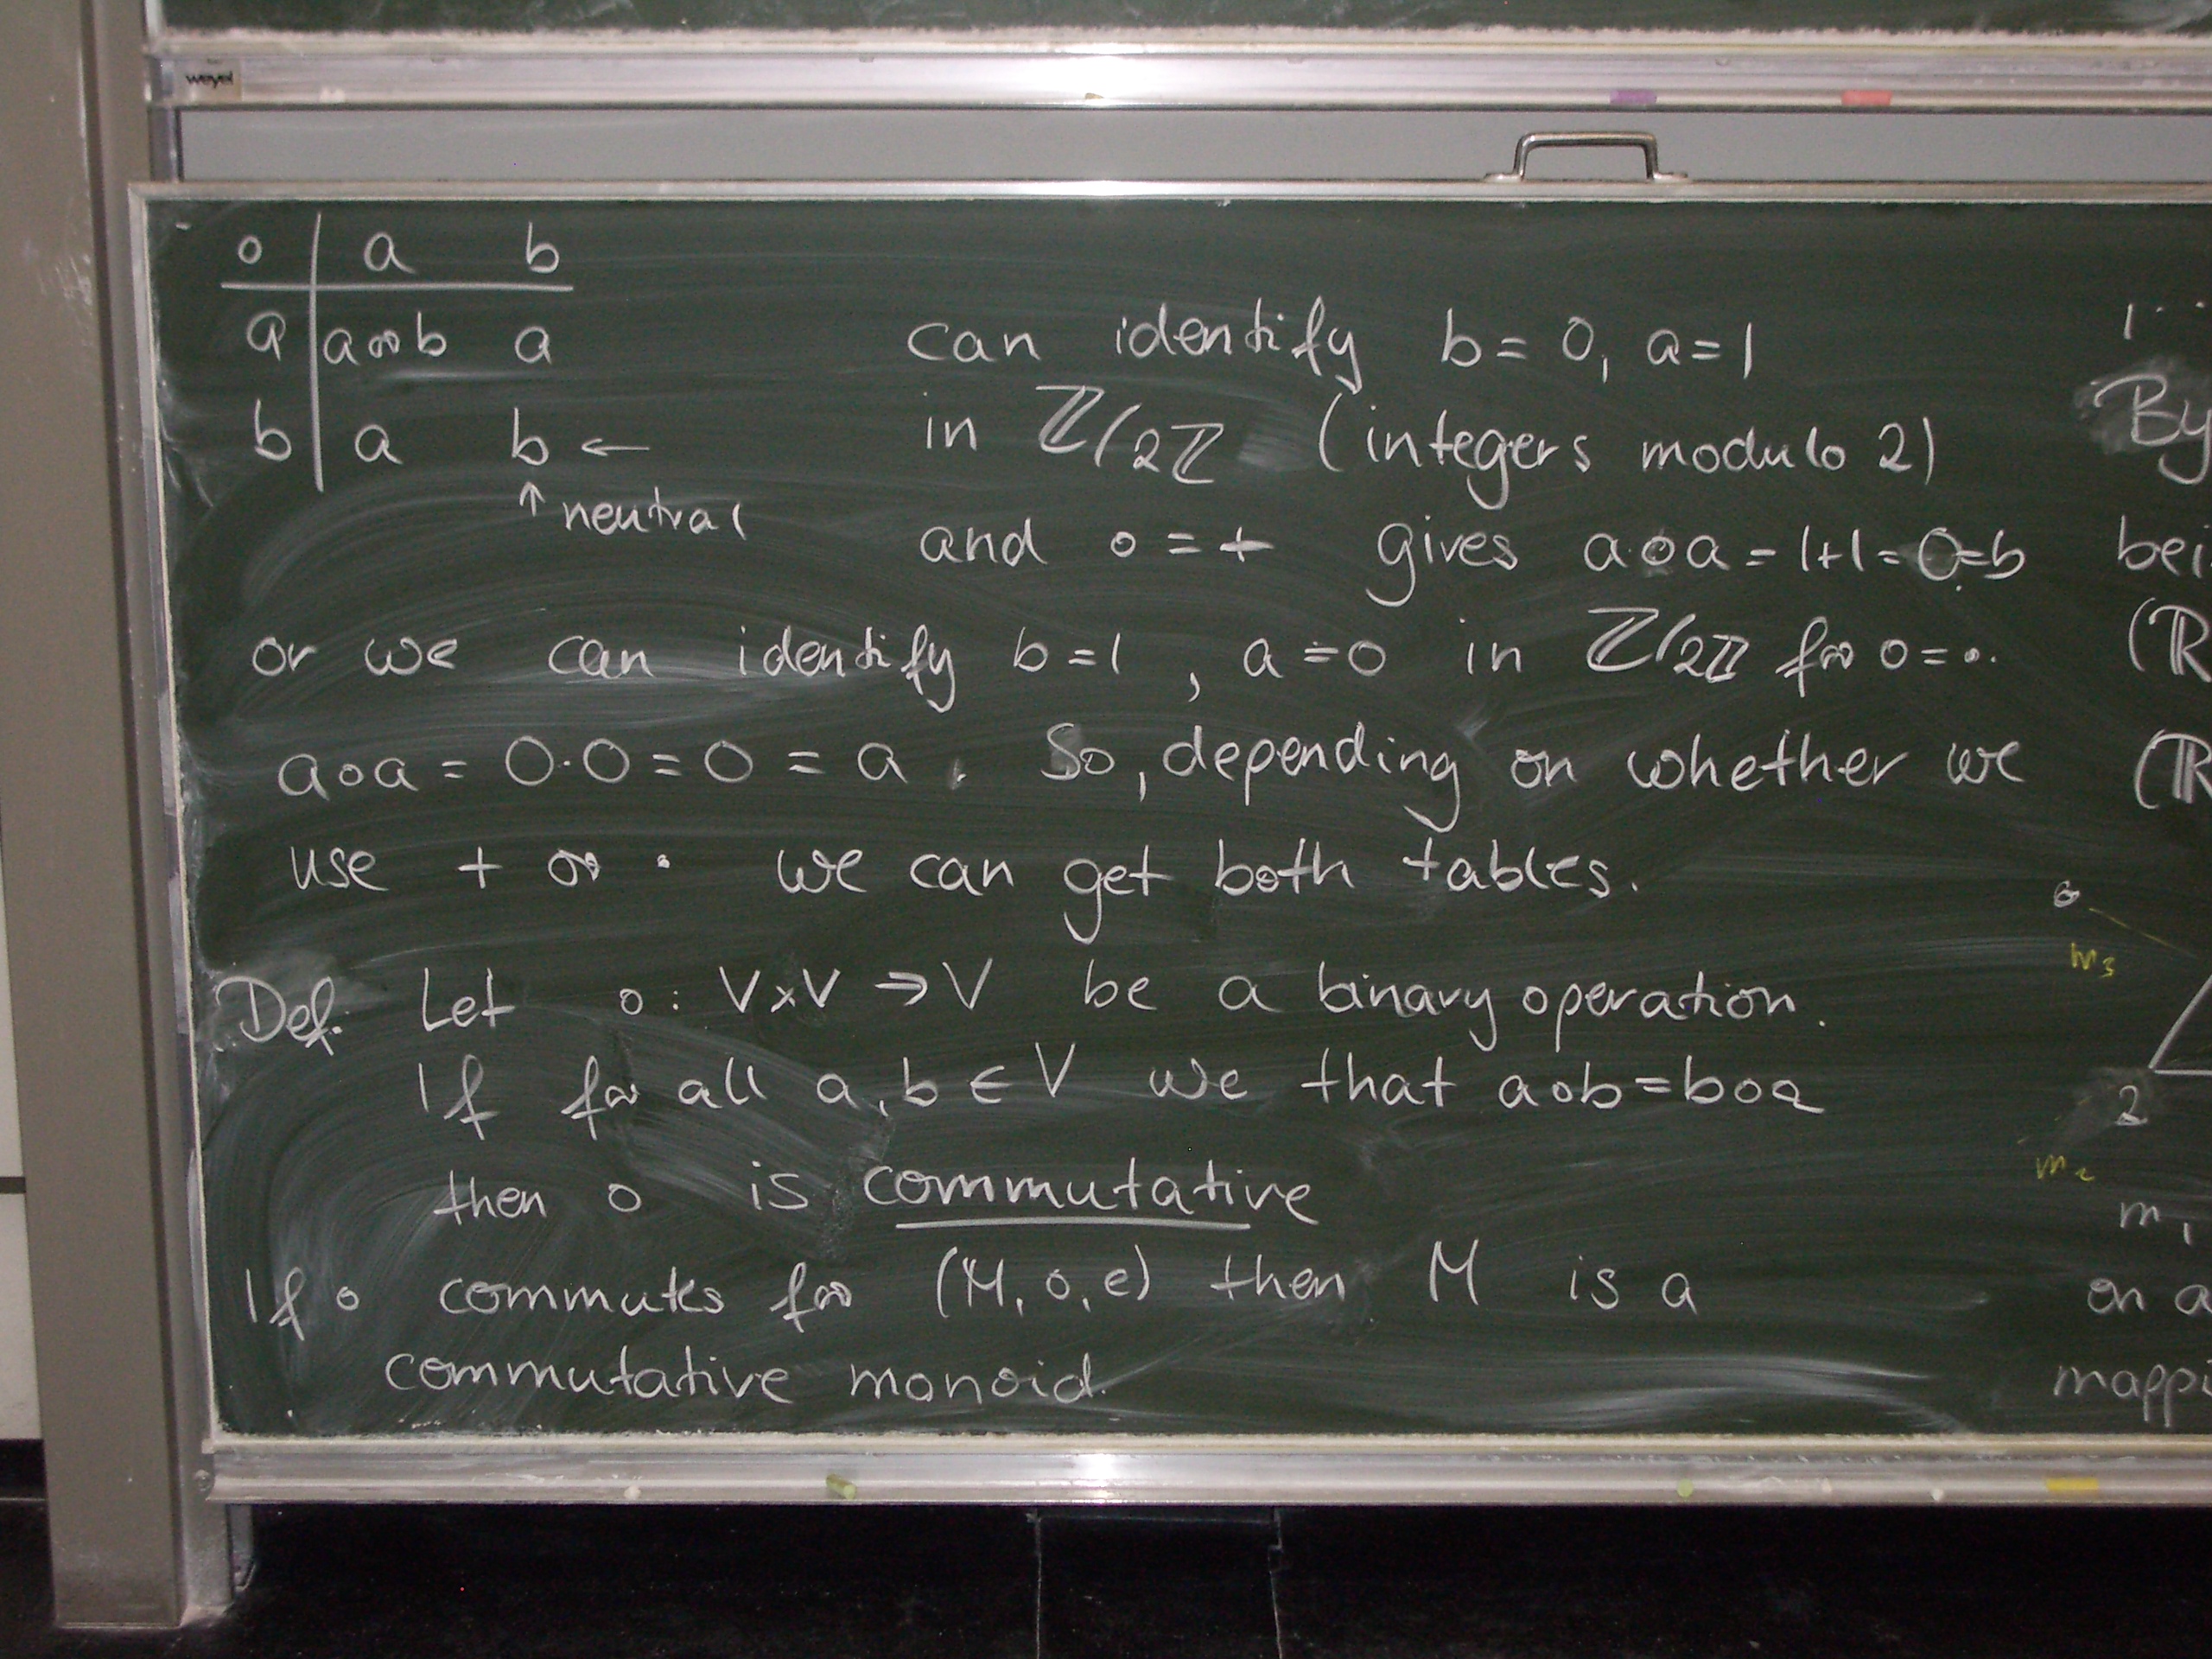 weyel
∘ | a b
a | a or b a
b | a b ←
↑ neutral
can identify b = 0, a = 1
in ℤ/2ℤ (integers modulo 2)
and ∘ = + gives a∘a = 1+1 = 0 = b
or we can identify b = 1, a = 0 in ℤ/2ℤ for ∘ = ·.
a∘a = 0·0 = 0 = a. So, depending on whether we
use + or · we can get both tables.
Def. Let ∘ : V×V → V be a binary operation.
If for all a, b ∈ V we that a∘b = b∘a
then ∘ is commutative
If ∘ commutes for (M, ∘, e) then M is a
commutative monoid.
By
bei
(ℝ
(ℝ
m₃
2
m₂
m₁
on a
mappi